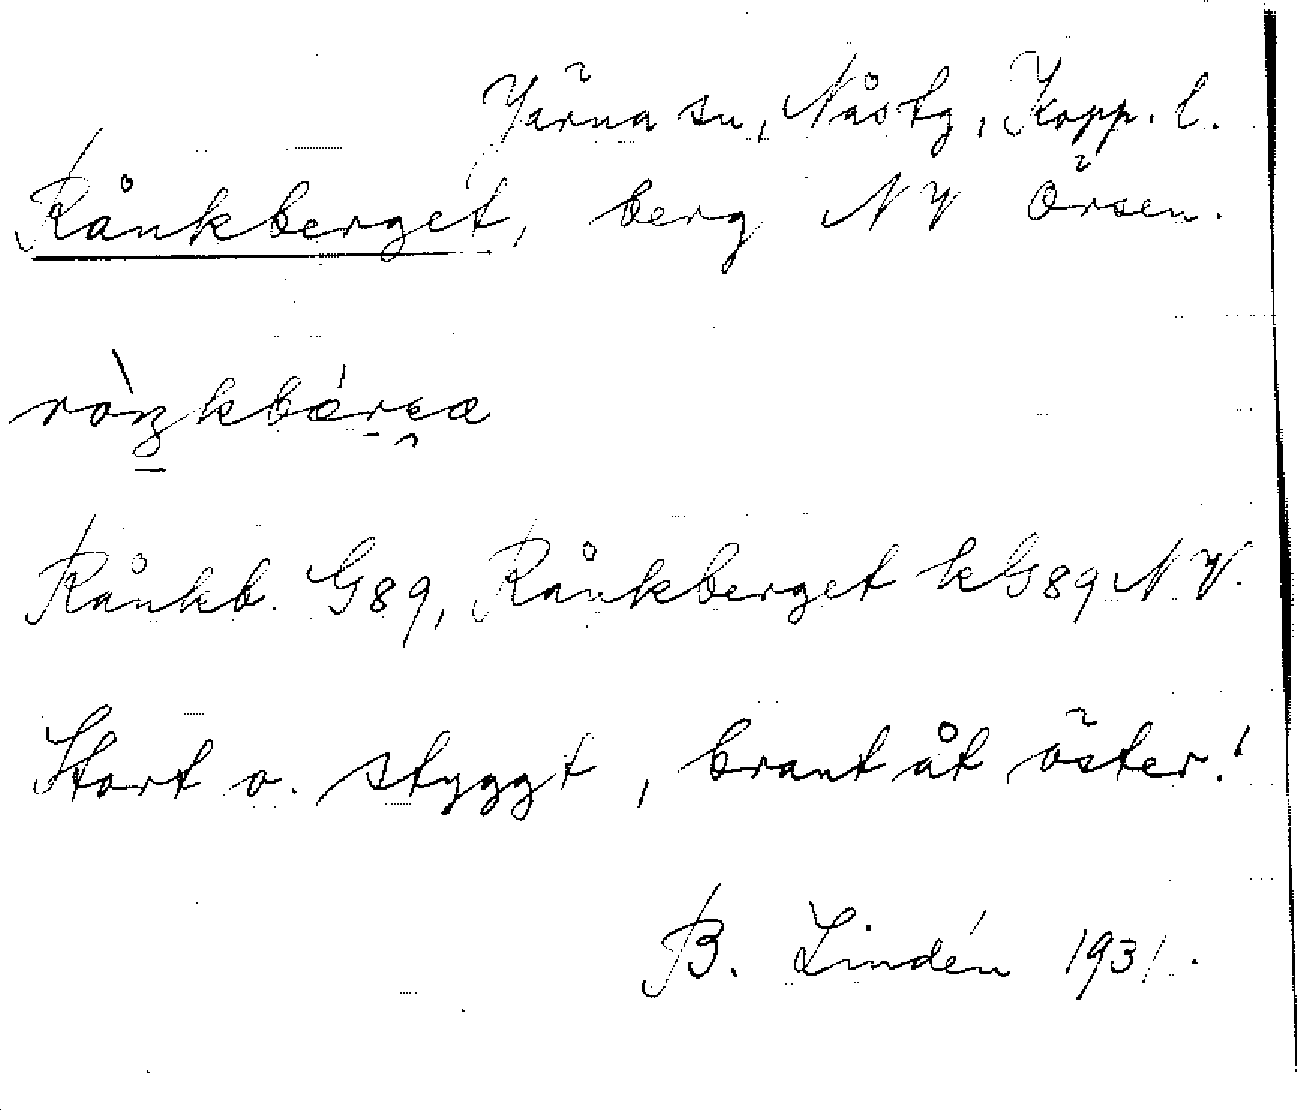 Järna sn, Nås tg, Kopp. l.
Rånkberget, berg NV Örsen.
Rånkb. G89, Rånkberget kG89 NV.
Stort o. styggt, brant åt öster!
B. Lindén 1931.